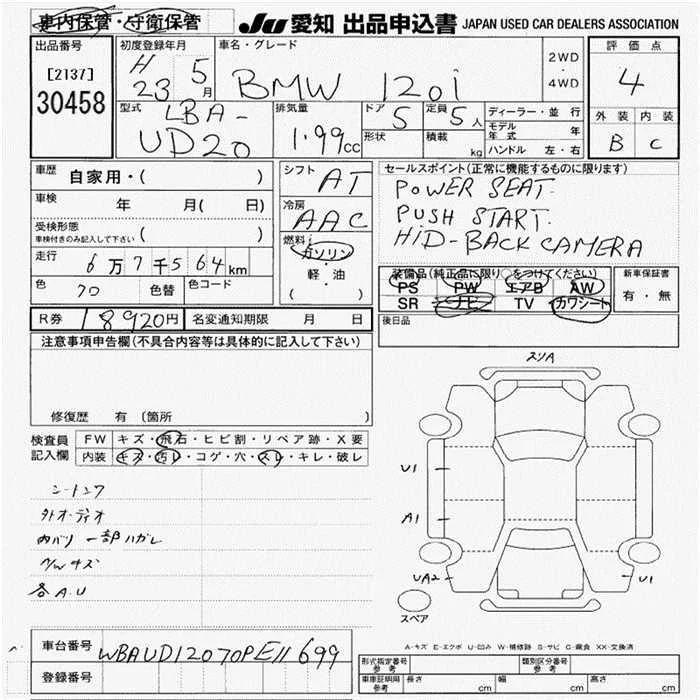 車内保管・守衛保管
JU 愛知 出品申込書 JAPAN USED CAR DEALERS ASSOCIATION
出品番号
[2137]
30458
初度登録年月
H 23 5月
車名・グレード
BMW 120i
2WD
・
4WD
評価点
4
外装 内装
B C
型式
LBA-
UD20
排気量
1.99cc
ドア 5
形状
定員 5人
積載 kg
ディーラー・並行
モデル年式 年
ハンドル 左・右
車歴 自家用・( )
車検 年 月( 日)
受検形態
車検付きのみ記入して下さい ( )
走行 6万7千564km
色 クロ 色替 色コード
シフト AT
冷房 AAC
燃料
ガソリン
・
軽・油
( )
セールスポイント(正常に機能するものに限ります)
POWER SEAT.
PUSH START.
HID-BACK CAMERA
装備品(純正品に限り○をつけてください)
PS PW エアB AW
SR ナビ TV カワシート
新車保証書
有・無
後日品
R券 18920円 名変通知期限 月 日
注意事項申告欄(不具合内容等は具体的に記入して下さい)
修復歴 有 (箇所
検査員
記入欄
FW キズ・飛石・ヒビ割・リペア跡・X要
内装 キズ・汚レ・コゲ・穴・スレ・キレ・破レ
シートシワ
外オーディオ
内バリ 一部ハガレ
A/Wキズ
各A.U
スリA
U1
A1
UA2
U1
スペア
A-キズ E-エクボ U-凹み W-補修跡 S-サビ C-腐食 XX-交換済
車台番号 WBAUD12070PE11699
登録番号
形式指定番号
参考
類別区分番号
参考
車庫証明用
参考
長さ cm 幅 cm 高さ cm